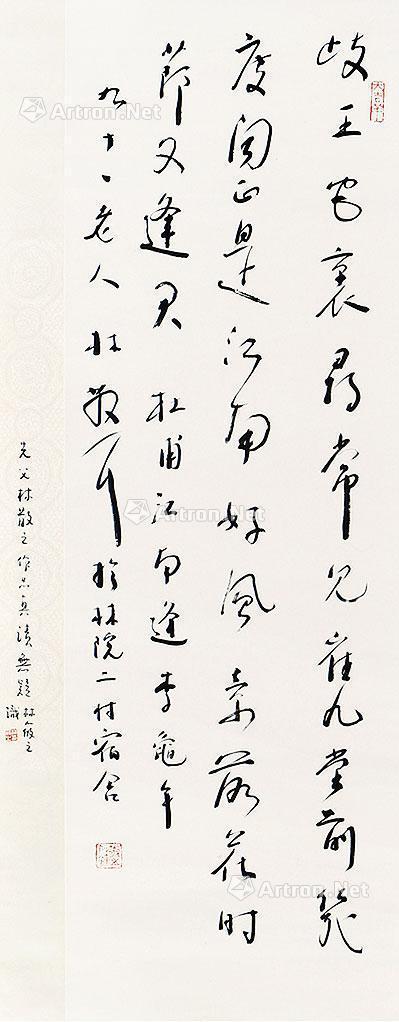 歧王宅裏尋常見崔九堂前幾
度闻正是江南好風景落花時
節又逢君 杜甫江南逢李龜年
九十一老人林散耳於林院二村宿舍
先父林散之作品真蹟無疑 林筱之
識
Artron.Net
Artron.Net
Artron.Net
Artron.Net
Artron.Net
Artron.Net